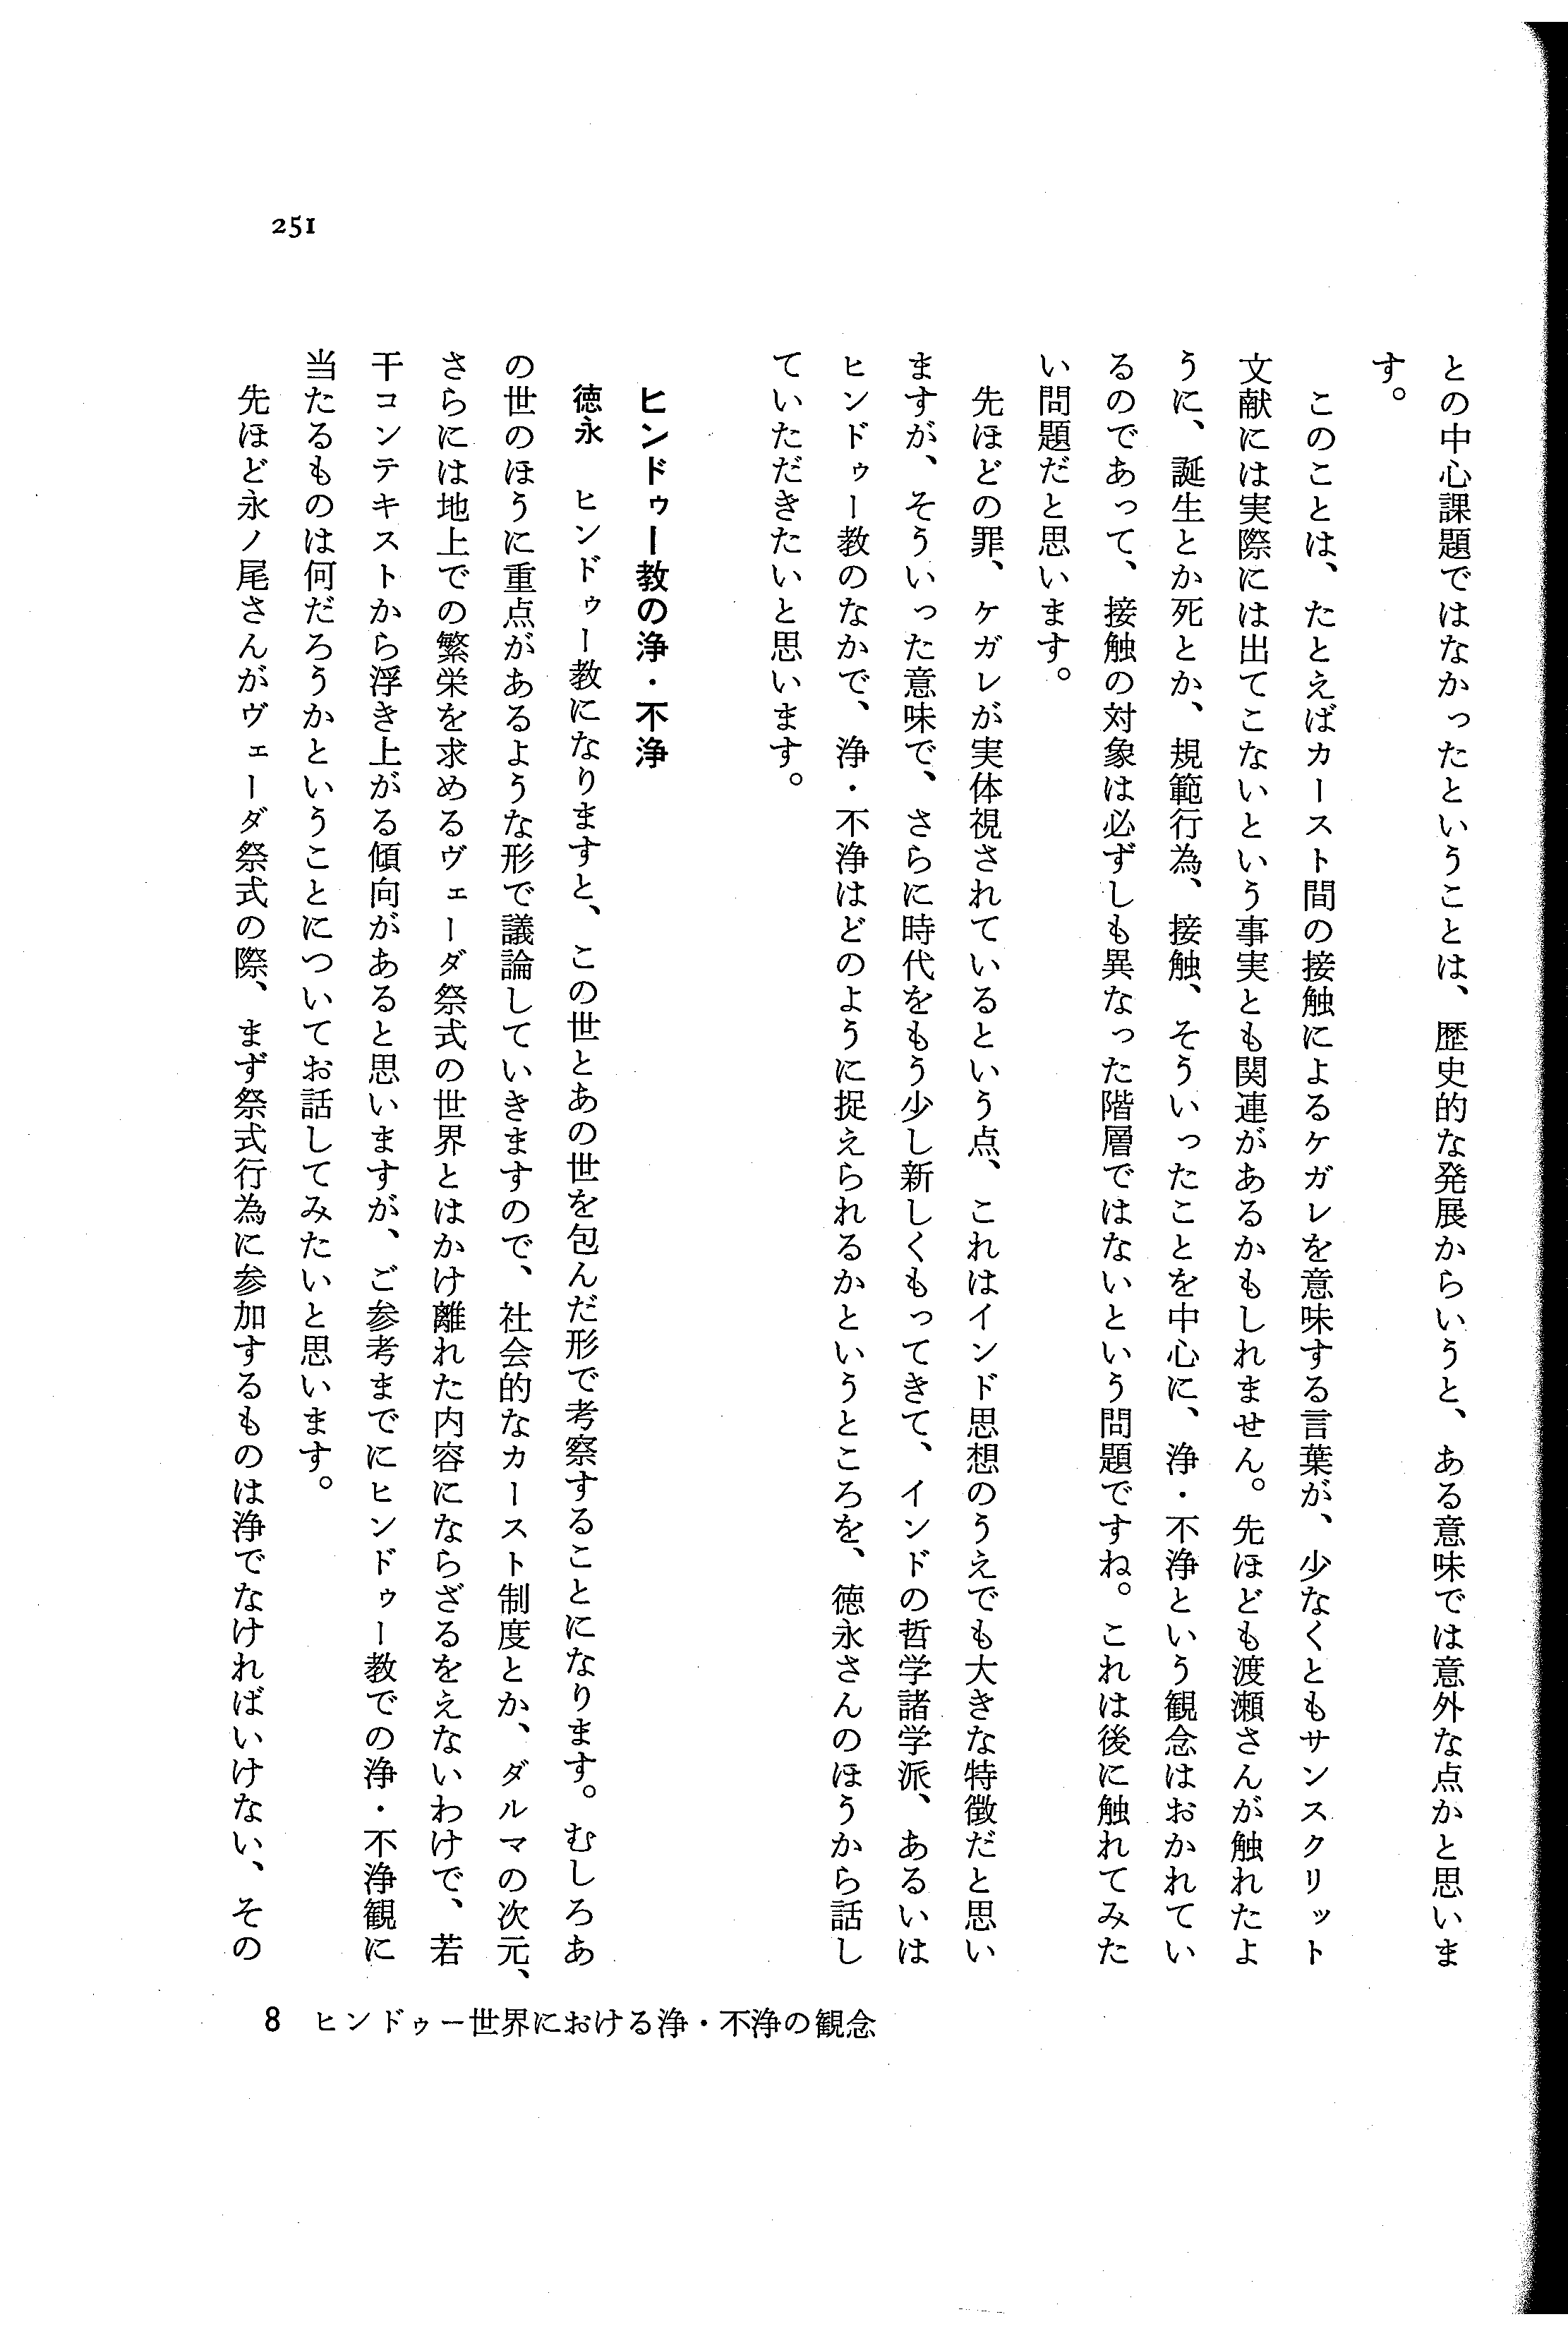 との中心課題ではなかったということは、歴史的な発展からいうと、ある意味では意外な点かと思いま
す。
このことは、たとえばカースト間の接触によるケガレを意味する言葉が、少なくともサンスクリット
文献には実際には出てこないという事実とも関連があるかもしれません。先ほども渡瀬さんが触れたよ
うに、誕生とか死とか、規範行為、接触、そういったことを中心に、浄・不浄という観念はおかれてい
るのであって、接触の対象は必ずしも異なった階層ではないという問題ですね。これは後に触れてみた
い問題だと思います。
先ほどの罪、ケガレが実体視されているという点、これはインド思想のうえでも大きな特徴だと思い
ますが、そういった意味で、さらに時代をもう少し新しくもってきて、インドの哲学諸学派、あるいは
ヒンドゥー教のなかで、浄・不浄はどのように捉えられるかというところを、徳永さんのほうから話し
ていただきたいと思います。
ヒンドゥー教の浄・不浄
徳永　ヒンドゥー教になりますと、この世とあの世を包んだ形で考察することになります。むしろあ
の世のほうに重点があるような形で議論していきますので、社会的なカースト制度とか、ダルマの次元、
さらには地上での繁栄を求めるヴェーダ祭式の世界とはかけ離れた内容にならざるをえないわけで、若
干コンテキストから浮き上がる傾向があると思いますが、ご参考までにヒンドゥー教での浄・不浄観に
当たるものは何だろうかということについてお話してみたいと思います。
先ほど永ノ尾さんがヴェーダ祭式の際、まず祭式行為に参加するものは浄でなければいけない、その
251
8　ヒンドゥー世界における浄・不浄の観念